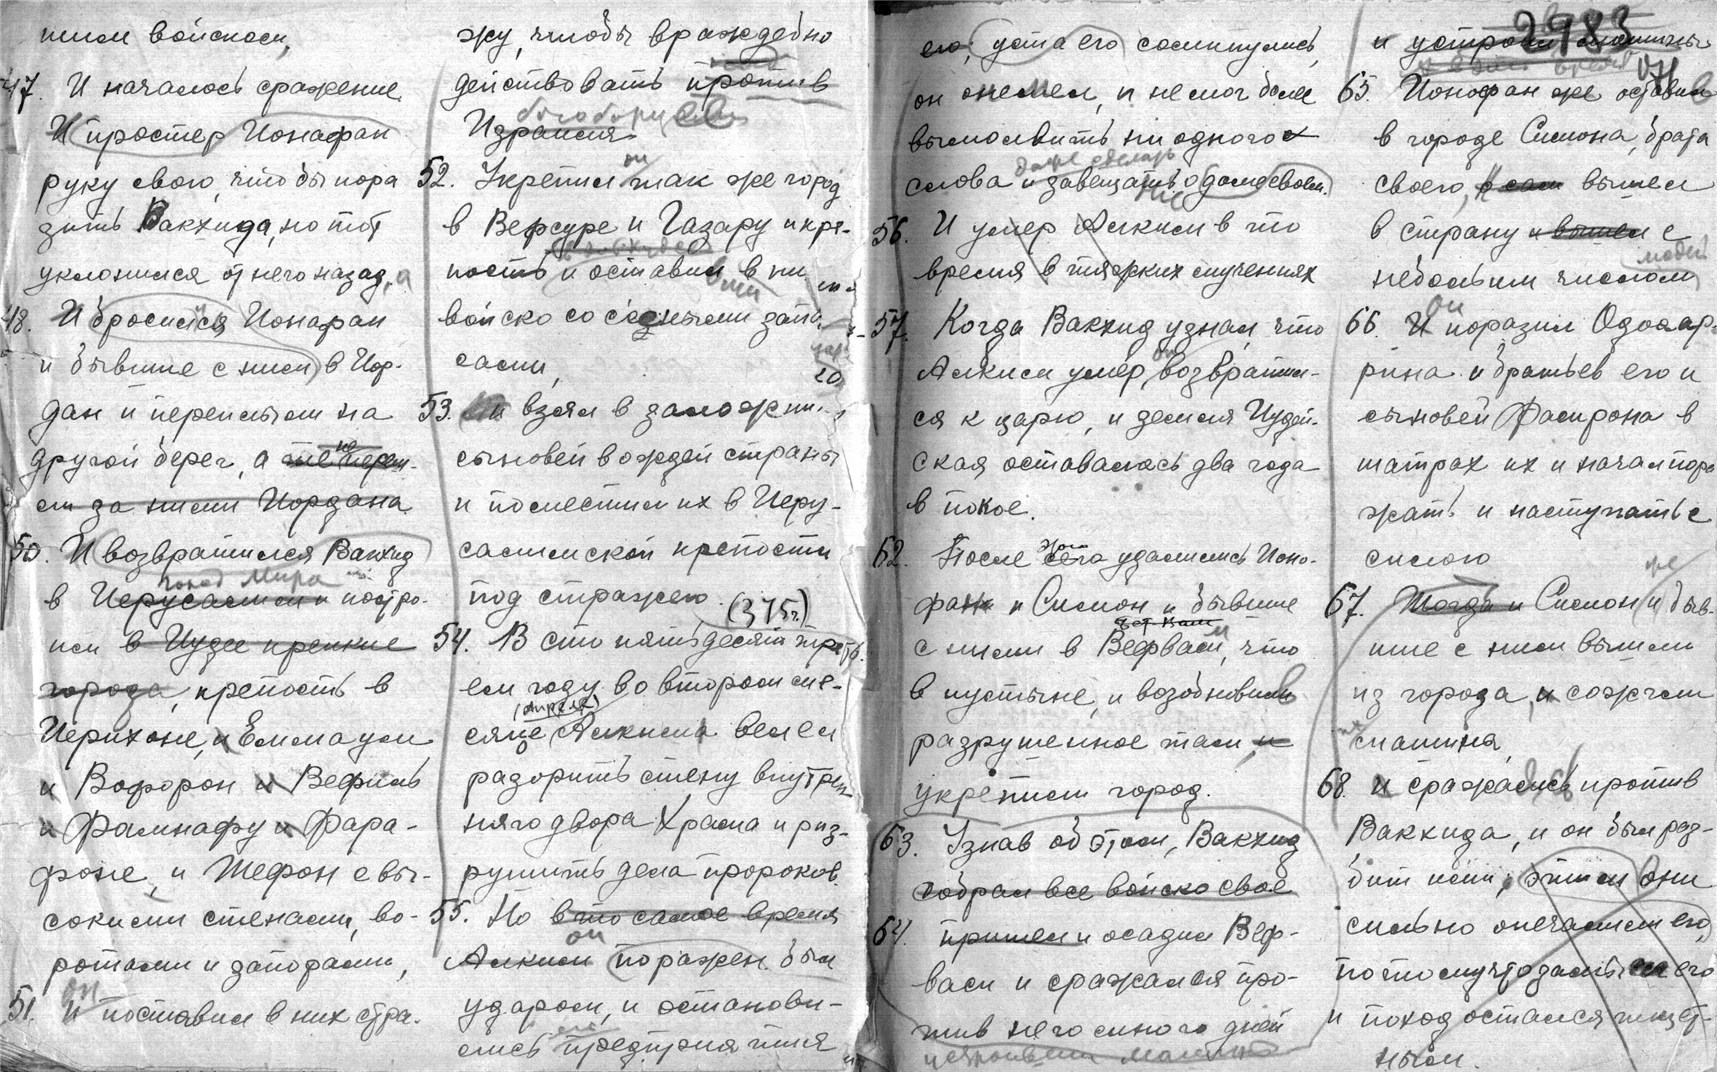 ним войском,
47. И началось сражение.
И простер Ионафан
руку свою, чтобы пора
зить Вакхида, но тот
уклонился от него назад, и
48. И бросился Ионафан
и бывшие с ним в Иор-
дан и переплыли на
другой берег, а те не переш-
ли за ними Иордана.
50. И возвратился Вакхид
поход мира
в Иерусалим и постро-
или в Иудее крепкие
города, крепость в
Иерихоне, и Еммаум
и Вофорон и Вефиль
и Фамнафу и Фара-
фоне, и Тефон с вы-
сокими стенами, во-
ротами и запорами,
он
51. И поставил в них стра-
жу, чтобы враждебно
действовать против
Израиля
он
52. Укрепил так же город
в Вефсуре и Газару и кре-
пость и оставил в ни
войско со съестными запа-
сами,
20
53. и взял в заложни
сыновей вождей страны
и поместил их в Иеру-
салимской крепости
под стражею.
(375г.)
54. В сто пятьдесят тре
ем году во втором ме-
(апреля)
сяце Алким велел
разорить стену внутрен
няго двора Храма и раз-
рушить дела пророков.
55. Но в то самое время
он
Алким поражен был
ударом, и останови-
лись его предприятия
его; уста его сомкнулись,
он онемел, и не мог более
вымолвить ни одного
даже сделать
слова и завещать о доме своем.
56. И умер Алким в то
время в тяжких мучениях
57. Когда Вакхид узнал, что
он
Алким умер, возвратил-
ся к царю, и земля Иудей-
ская оставалась два года
в покое.
этого
62. После сего удалились Иона-
фан и Симон и бывшие
с ними в Вефваси, что
в пустыне, и возобновили
разрушенное там, и
укрепили город.
63. Узнав об этом, Вакхид
собрал все войско свое
64. пришел и осадил Веф-
васи и сражался про-
тив него много дней
устроивши машины
2983
и устроил машины
65. Ионафан же оставил
в городе Симона, брата
своего, а сам вышел
в страну и вышел с
людей
небольшим числом
он
66. И поразил Одоаар-
рина и братьев его и
сыновей Фасирона в
шатрах их и начал пора
жать и наступать с
силою
же
67. Тогда и Симон и быв-
шие с ним вышли
из города, и сожгли
машины,
68. и сражались против
Вакхида, и он был раз-
бит ими, этим они
сильно опечалили его,
потому что замысел его
и поход остался тщет-
ным.